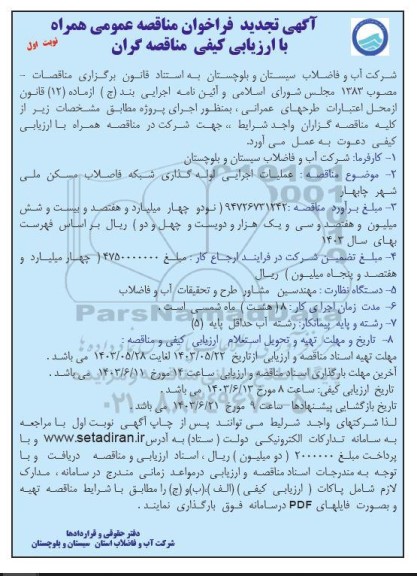 آگهی تجدید فراخوان مناقصه عمومی همراه
با ارزیابی کیفی مناقصه گران
نوبت اول
شرکت آب و فاضلاب سیستان و بلوچستان به استناد قانون برگزاری مناقصات -
مصوب ۱۳۸۳ مجلس شورای اسلامی و آئین نامه اجرایی بند (ج) ازماده (۱۲) قانون
ازمحل اعتبارات طرحهای عمرانی ، بمنظور اجرای پروژه مطابق مشخصات زیر از
کلیه مناقصه گزاران واجد شرایط ،، جهت شرکت در مناقصه همراه با ارزیابی
کیفی دعوت به عمل می آورد.
۱- کارفرما: شرکت آب و فاضلاب سیستان و بلوچستان
۲- موضوع مناقصه : عملیات اجرایی لوله گذاری شبکه فاضلاب مسکن ملی
شهر چابهار
۳- مبلغ برآورد مناقصه :۹۴۷۲۶۷۳۱۲۴۲ ( نودو چهار میلیارد و هفتصد و بیست و شش
میلیون و هفتصد و سی و یک هزار و دویست و چهل و دو ) ریال بر اساس فهرست
بهای سال ۱۴۰۳
۴- مبلغ تضمین شرکت در فرایند ارجاع کار : مبلغ ۴۷۵۰۰۰۰۰۰۰ ( چهار میلیارد و
هفتصد و پنجاه میلیون ) ریال
۵- دستگاه نظارت : مهندسین مشاور طرح و تحقیقات آب و فاضلاب
۶- مدت زمان اجرای کار : ۸ ( هشت ) ماه شمسی است .
۷- رشته و پایه پیمانکار: رشته آب حداقل پایه (۵)
۸- تاریخ و مهلت تهیه و تحویل استعلام ارزیابی کیفی و مناقصه :
مهلت تهیه اسناد مناقصه و ارزیابی ازتاریخ ۱۴۰۳/۰۵/۲۲ لغایت ۱۴۰۳/۰۵/۲۸ می باشد .
آخرین مهلت بارگذاری اسناد مناقصه و ارزیابی ساعت ۱۴ مورخ ۱۴۰۳/۶/۱۱ می باشد .
تاریخ ارزیابی کیفی: ساعت ۸ مورخ ۱۴۰۳/۶/۱۳ می باشد .
تاریخ بازگشایی پیشنهادها ساعت ۹ مورخ ۱۴۰۳/۶/۲۱ می باشد .
لذا شرکتهای واجد شرایط می توانند پس از چاپ آگهی نوبت اول با مراجعه
به سامانه تدارکات الکترونیکی دولت (ستاد) به آدرس www.setadiran.ir و با
پرداخت مبلغ ۲۰۰۰۰۰۰ ( دو میلیون ) ریال ، اسناد ارزیابی و مناقصه دریافت و با
توجه به مندرجات اسناد مناقصه و ارزیابی درمواعد زمانی مندرج در سامانه ، مدارک
لازم شامل پاکات ( ارزیابی کیفی ) (الف )،(ب)و (ج) را مطابق با شرایط مناقصه تهیه
و بصورت فایلهای PDF درسامانه فوق بارگذاری نمایند .
دفتر حقوقی و قراردادها
شرکت آب و فاضلاب استان سیستان و بلوچستان